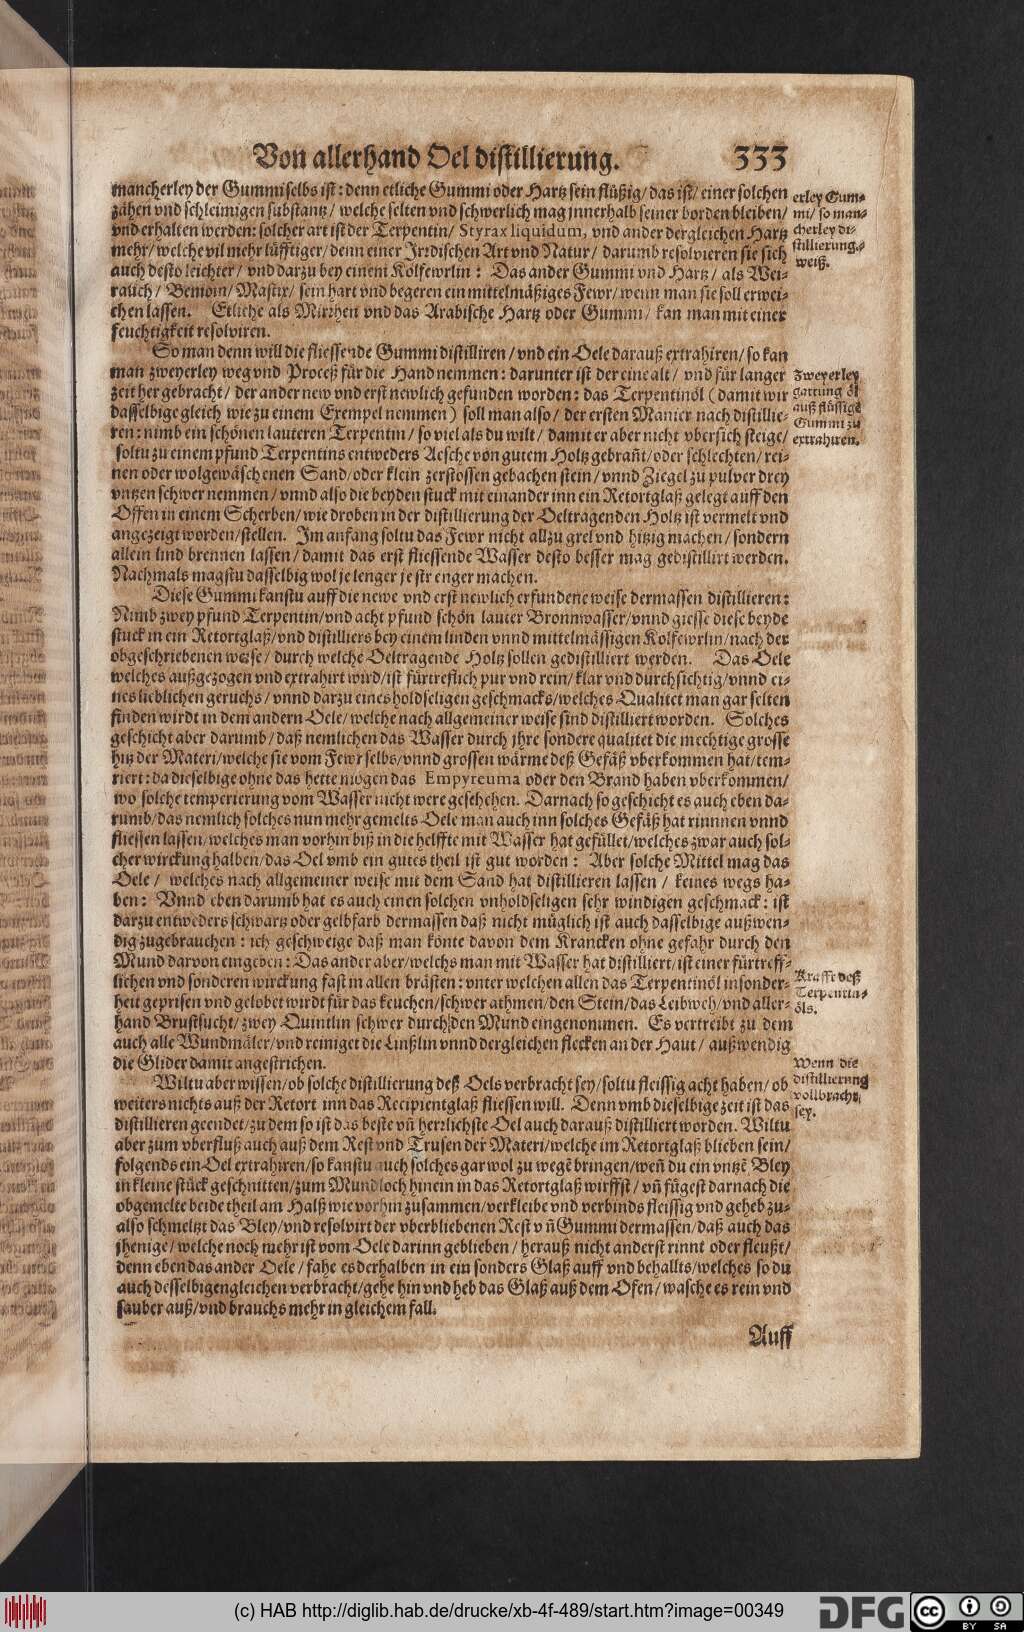 Von allerhand Oel distillierung. 333
mancherley der Gummi selbs ist: denn etliche Gummi oder Hartz sein flüßig/ das ist/ einer solchen
zähen vnd schleimigen substantz/ welche selten vnd schwerlich mag innerhalb seiner borden bleiben/
vnd erhalten werden: solcher art ist der Terpentin/ Styrax liquidum, vnd ander dergleichen Hartz
mehr/ welche vil mehr lüfftiger/ denn einer Irrdischen Art vnd Natur/ darumb resolvieren sie sich
auch desto leichter/ vnd darzu bey einem Kolfewrlin: Das ander Gummi vnd Hartz/ als Wei-
rauch/ Bemoin/ Mastix/ sein hart vnd begeren ein mittelmäßiges Fewr/ wenn man sie soll erwei-
chen lassen. Etliche als Mirrhen vnd das Arabische Hartz oder Gummi/ kan man mit einer
feuchtigkeit resolviren.
erley Gum-
mi/ so man-
cherley di-
stillierung-
weiß.
So man denn will die fliessende Gummi distilliren/ vnd ein Oele darauß extrahiren/ so kan
man zweyerley weg vnd Proceß für die Hand nemmen: darunter ist der eine alt/ vnd für langer
zeit her gebracht/ der ander new vnd erst newlich gefunden worden: das Terpentinöl (damit wir
dasselbige gleich wie zu einem Exempel nemmen) soll man also/ der ersten Manier nach distillie-
ren: nimb ein schönen lauteren Terpentin/ so viel als du wilt/ damit er aber nicht vbersich steige/
soltu zu einem pfund Terpentins entweders Aesche von gutem Holtz gebrañt/ oder schlechten/ rei-
nen oder wolgewäschenen Sand/ oder klein zerstossen gebachen stein/ vnnd Ziegel zu pulver drey
vntzen schwer nemmen/ vnnd also die beyden stuck mit einander inn ein Retortglaß gelegt auff den
Offen in einem Scherben/ wie droben in der distillierung der Oeltragenden Holtz ist vermelt vnd
angezeigt worden/ stellen. Im anfang soltu das Fewr nicht allzu grel vnd hitzig machen/ sondern
allein lind brennen lassen/ damit das erst fliessende Wasser desto besser mag gedistillirt werden.
Nachmals magstu dasselbig wol je lenger je strenger machen.
Zweyerley
gattung öl
auß flüssige
Gummi zu
extrahiren.
Diese Gummi kanstu auff die newe vnd erst newlich erfundene weise dermassen distillieren:
Nimb zwey pfund Terpentin/ vnd acht pfund schön lauter Bronnwasser/ vnnd giesse diese beyde
stuck in ein Retortglaß/ vnd distilliers bey einem linden vnnd mittelmässigen Kolfewrlin/ nach der
obgeschriebenen weise/ durch welche Oeltragende Holtz sollen gedistilliert werden. Das Oele
welches außgezogen vnd extrahirt wird/ ist fürtreflich pur vnd rein/ klar vnd durchsichtig/ vnnd ei-
nes lieblichen geruchs/ vnnd darzu eines holdseligen geschmacks/ welches Qualitet man gar selten
finden wirdt in dem andern Oele/ welche nach allgemeiner weise sind distilliert worden. Solches
geschicht aber darumb/ daß nemlichen das Wasser durch jhre sondere qualitet die mechtige grosse
hitz der Materi/ welche sie vom Fewr selbs/ vnnd grossen wärme deß Gefäß vberkommen hat/ tem-
riert: da dieselbige ohne das hette mögen das Empyreuma oder den Brand haben vberkommen/
wo solche temperierung vom Wasser nicht were geschehen. Darnach so geschicht es auch eben da-
rumb/ das nemlich solches nun mehr gemelts Oele man auch inn solches Gefäß hat rinnnen vnnd
fliessen lassen/ welches man vorhin biß in die helffte mit Wasser hat gefüllet/ welches zwar auch sol-
cher wirckung halben/ das Oel vmb ein gutes theil ist gut worden: Aber solche Mittel mag das
Oele/ welches nach allgemeiner weise mit dem Sand hat distillieren lassen/ keines wegs ha-
ben: Vnnd eben darumb hat es auch einen solchen vnholdseligen sehr windigen geschmack: ist
darzu entweders schwartz oder gelbfarb dermassen daß nicht müglich ist auch dasselbige außwen-
dig zugebrauchen: ich geschweige daß man könte davon dem Krancken ohne gefahr durch den
Mund darvon eingeben: Das ander aber/ welchs man mit Wasser hat distilliert/ ist einer fürtreff-
lichen vnd sonderen wirckung fast in allen brästen: vnter welchen allen das Terpentinöl insonder-
heit geprisen vnd gelobet wirdt für das keuchen/ schwer athmen/ den Stein/ das Leibweh/ vnd aller-
hand Brustsucht/ zwey Quintlin schwer durch den Mund eingenommen. Es vertreibt zu dem
auch alle Wundmäler/ vnd reiniget die Linßlin vnnd dergleichen flecken an der Haut/ außwendig
die Glider damit angestrichen.
Krafft deß
Terpentin-
öls.
Wiltu aber wissen/ ob solche distillierung deß Oels verbracht sey/ soltu fleissig acht haben/ ob
weiters nichts auß der Retort inn das Recipientglaß fliessen will. Denn vmb dieselbige zeit ist das
distillieren geendet/ zu dem so ist das beste vñ herrlichste Oel auch darauß distilliert worden. Wiltu
aber zum vberfluß auch auß dem Rest vnd Trusen der Materi/ welche im Retortglaß blieben sein/
folgends ein Oel extrahiren/ so kanstu auch solches gar wol zu wegẽ bringen/ weñ du ein vntzẽ Bley
in kleine stück geschnitten/ zum Mundloch hinein in das Retortglaß wirffst/ vñ fügest darnach die
obgemelte beide theil am Halß wie vorhin zusammen/ verkleibe vnd verbinds fleissig vnd geheb zu-
also schmeltzt das Bley/ vnd resolvirt der vberbliebenen Rest vñ Gummi dermassen/ daß auch das
jhenige/ welche noch mehr ist vom Oele darinn geblieben/ herauß nicht anderst rinnt oder fleußt/
denn eben das ander Oele/ fahe es derhalben in ein sonders Glaß auff vnd behallts/ welches so du
auch desselbigen gleichen verbracht/ gehe hin vnd heb das Glaß auß dem Ofen/ wasche es rein vnd
sauber auß/ vnd brauchs mehr in gleichem fall.
Wenn die
distillierung
vollbracht
sey.
Auff
(c) HAB http://diglib.hab.de/drucke/xb-4f-489/start.htm?image=00349
DFG
cc BY SA